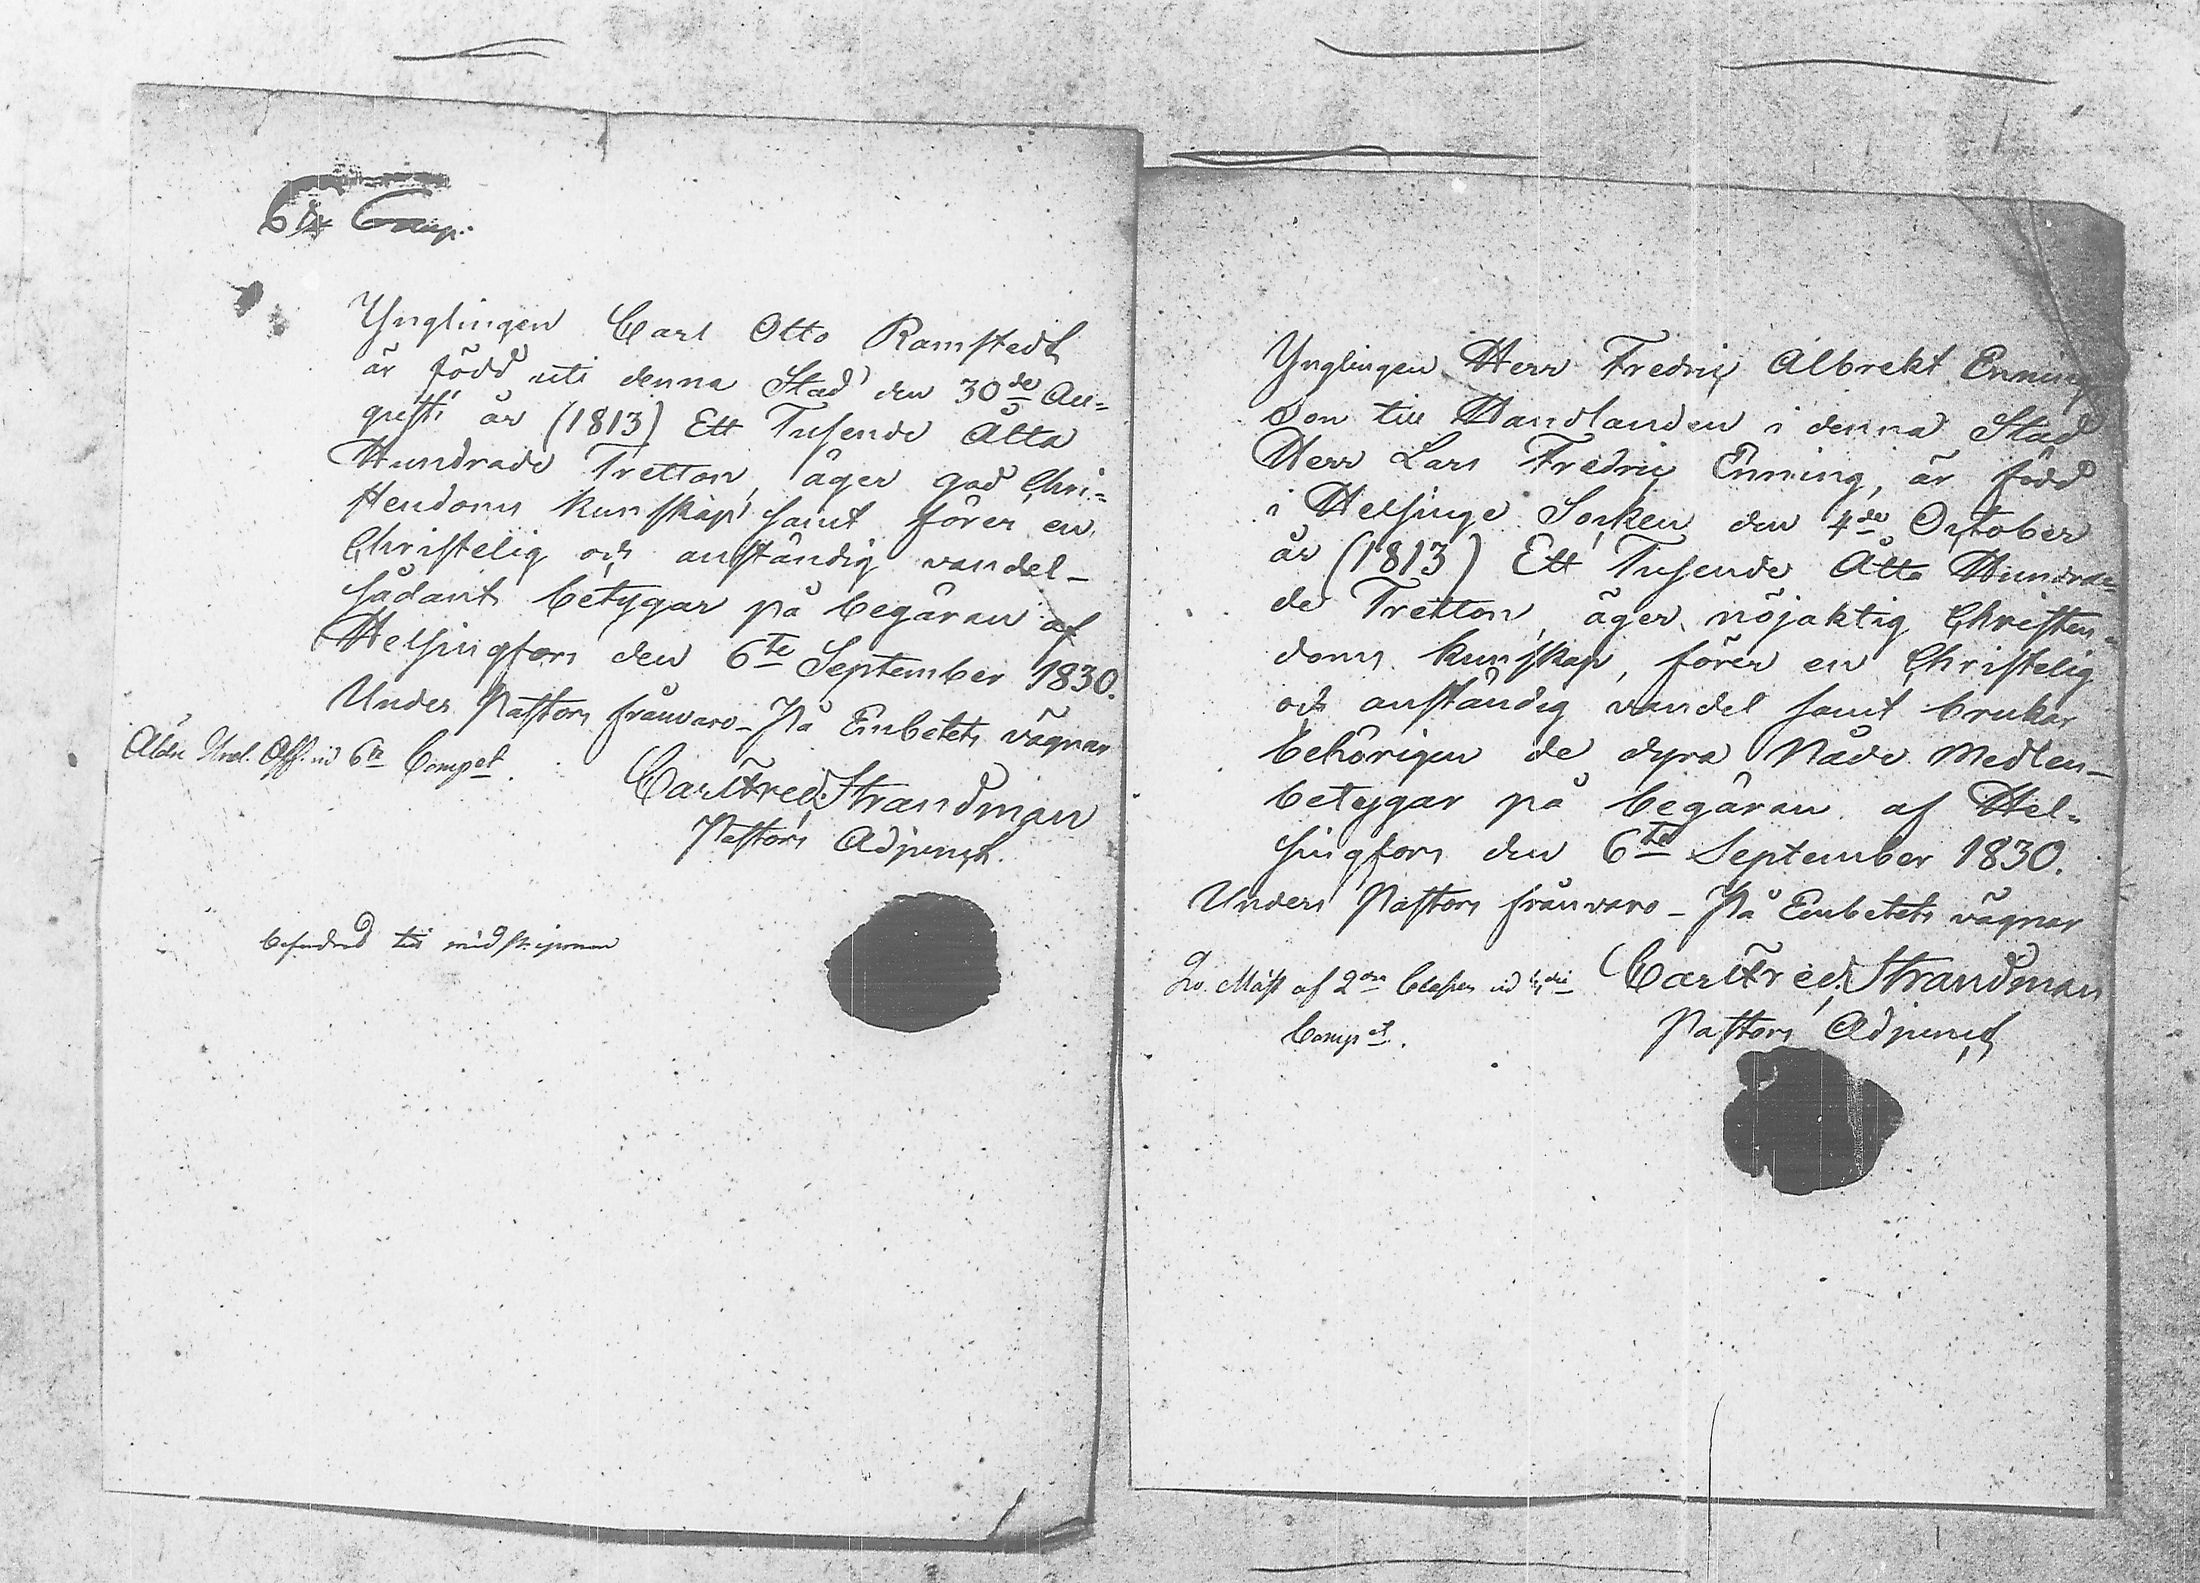 6te Comp.
Ynglingen Carl Otto Ramstedt
är född uti denna Stad den 30de Au-
gusti år (1813) Ett Tusende Åtta
Hundrade Tretton, äger god Chri-
stendoms kunskap samt förer en
Christelig och anständig vandel –
sådant betygar på begäran af
Helsingfors den 6te September 1830.
Under Pastors frånvaro – På Embetets vägnar
Carl Fred. Strandman
Pastors Adjunct.
Äldre Und. Off. vid 6te Compet.
befordrad till midshipman
Ynglingen Herr Fredric Albrekt Enning
Son till Handlanden i denna Stad
Herr Lars Fredric Enning, är född
i Helsinge Socken den 4de October
år (1813) Ett Tusende Åtta Hundra-
de Tretton, äger nöjaktig Christen-
doms kunskap, förer en Christelig
och anständig vandel samt brukar
behörigen de dyra Nåde Medlen –
betygar på begäran af Hel-
singfors den 6te September 1830.
Under Pastors frånvaro – På Embetets vägnar
Carl Fred. Strandman
Pastors Adjunct
Qv. Mäst af 2dra Classen vid
Compet.